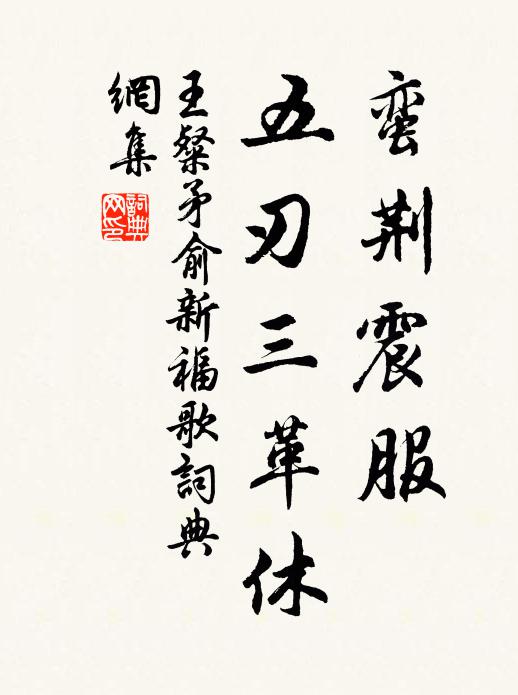 蛮荆震服
五刃三革休
王粲矛俞新福歌詞典
網集
詞典
网印